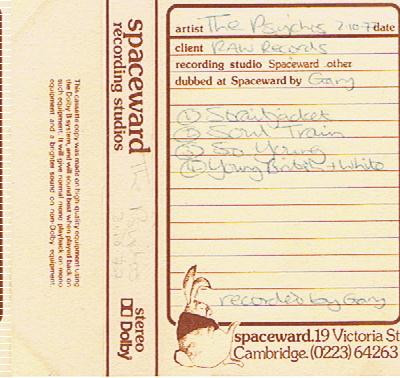 This cassette copy was made on high quality equipment using
the Dolby B system, and will sound best when played back on
such equipment. It will give normal mono playback on mono
equipment and a brighter sound on non-Dolby equipment.
spaceward
recording studios
The Psychos
2.10.77
stereo
Dolby
artist The Psychos 2-10-77 date
client RAW Records
recording studio Spaceward .other
dubbed at Spaceward by Gary
① Straitjacket
② Soul Train
③ So Young
④ Young British + White
recorded by Gary
spaceward.19 Victoria St
Cambridge.(0223) 64263